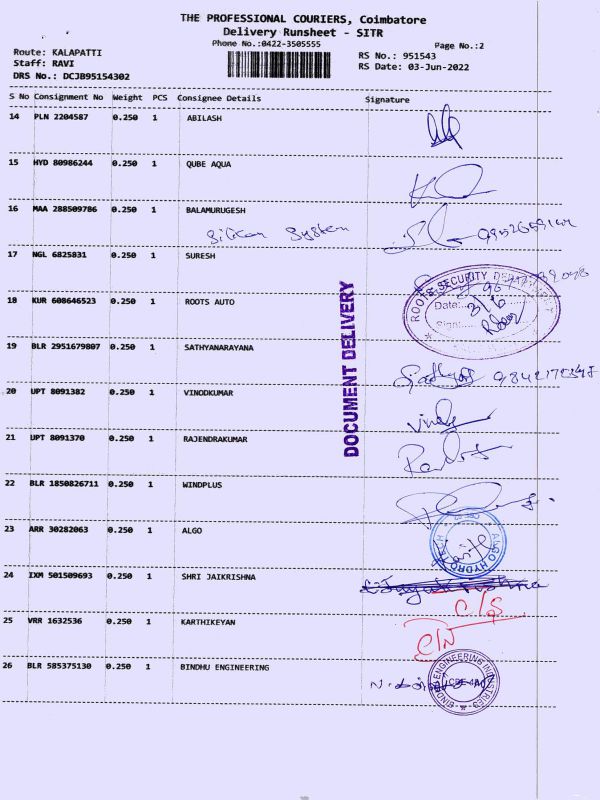 THE PROFESSIONAL COURIERS, Coimbatore
Delivery Runsheet - SITR
Phone No.:0422-3505555
Page No.:2
Route: KALAPATTI
RS No.: 951543
Staff: RAVI
RS Date: 03-Jun-2022
DRS No.: DCJB95154302
S No Consignment No Weight PCS Consignee Details Signature
14 PLN 2204587 0.250 1 ABILASH
15 HYD 80986244 0.250 1 QUBE AQUA
16 MAA 288509786 0.250 1 BALAMURUGESH
System
17 NGL 6825831 0.250 1 SURESH
ROOTS SECURITY DEPARTMENT
Date:
3/6
Sign:
18 KUR 608646523 1 ROOTS AUTO
DOCUMENT DELIVERY
19 BLR 2951679807 0.250 1 SATHYANARAYANA
20 UPT 8091382 0.250 1 VINODKUMAR
21 UPT 8091370 0.250 1 RAJENDRAKUMAR
22 BLR 1850826711 0.250 1 WINDPLUS
23 ARR 30282063 0.250 1 ALGO
ALGO HYDRO
24 IXM 501509693 0.250 1 SHRI JAIKRISHNA
C/S
25 VRR 1632536 0.250 1 KARTHIKEYAN
C/N
26 BLR 585375130 0.250 1 BINDHU ENGINEERING
BINDHU ENGINEERING INDUSTRIES